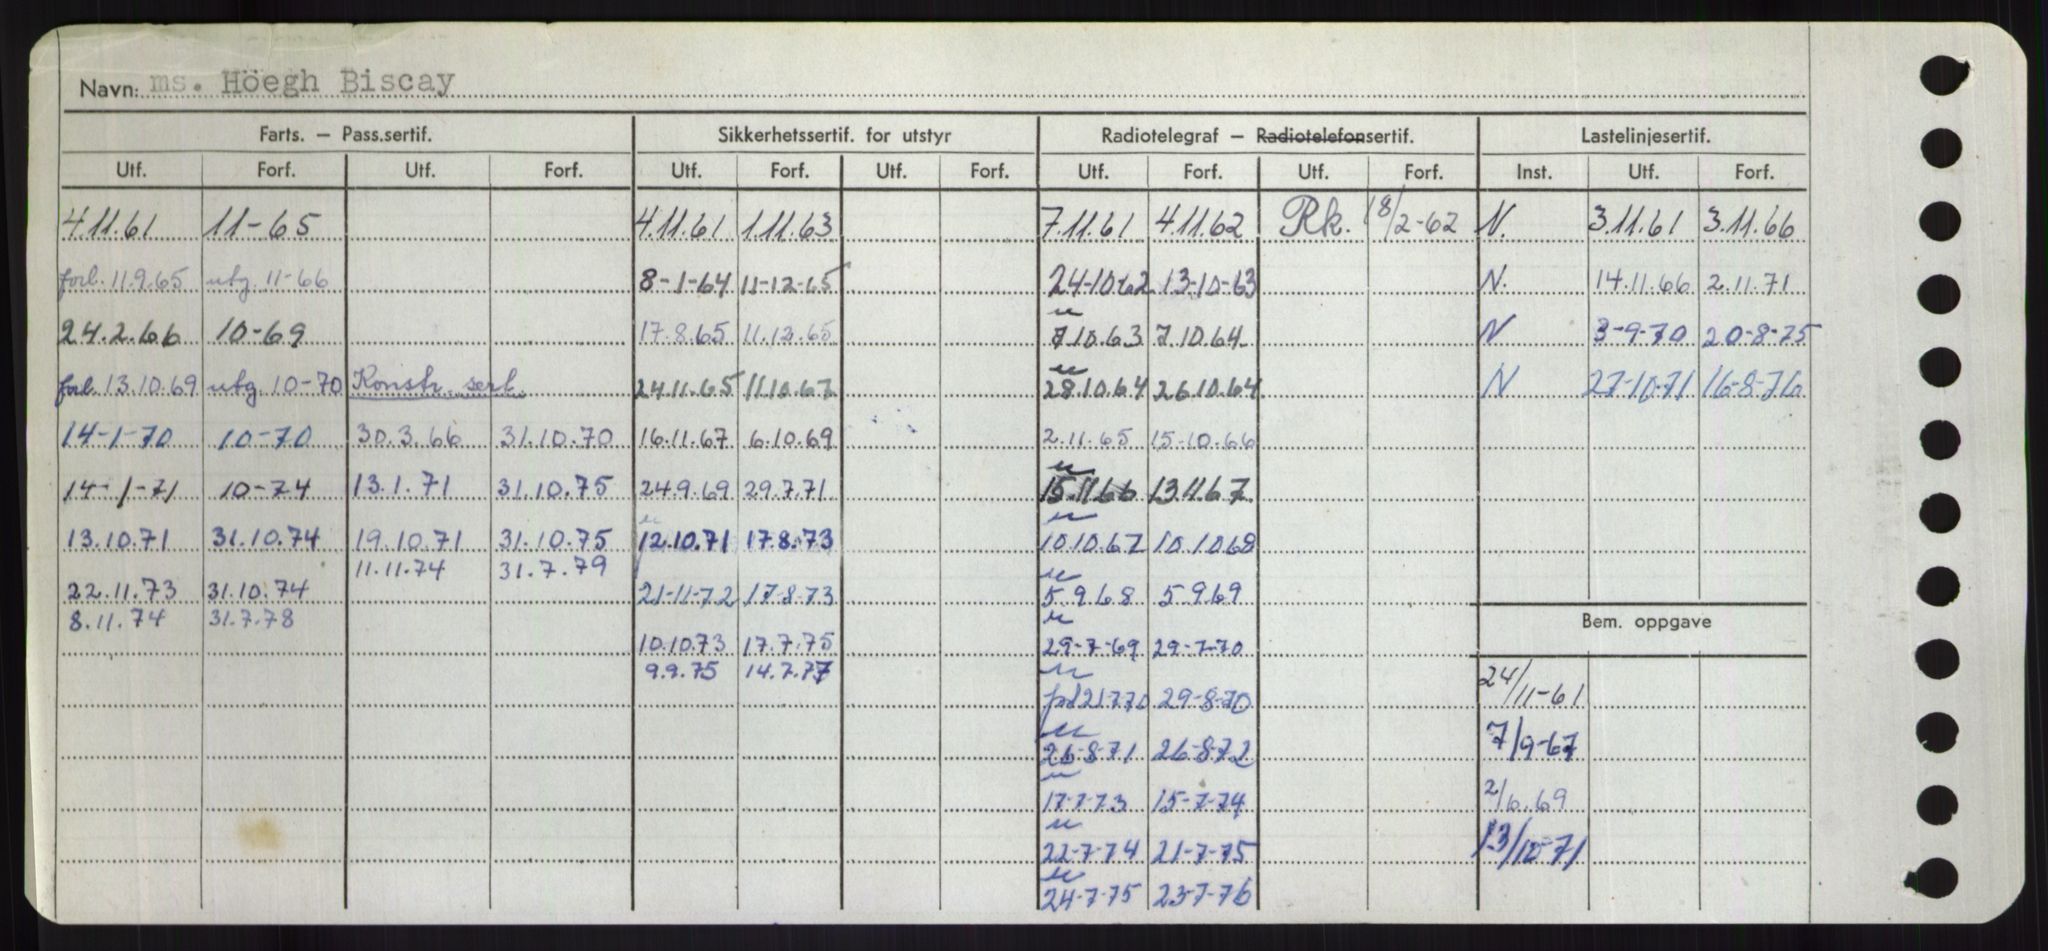 Navn: ms. Höegh Biscay
Farts. — Pass.sertif. Sikkerhetssertif. for utstyr Radiotelegraf — Radiotelefonsertif. Lastelinjesertif.
Utf. Forf. Utf. Forf. Utf. Forf. Utf. Forf. Utf. Forf. Utf. Forf. Inst. Utf. Forf.
4.11.61 11-65 4.11.61 1.11.63 7.11.61 4.11.62 Rk. 18/2-62 N. 3.11.61 3.11.66
forl. 11.9.65 utg. 11-66 8-1-64 11-12-65 24-10-62 13-10-63 N. 14.11.66 2.11.71
24.2.66 10-69 17.8.65 11.12.65 7.10.63 7.10.64 N 3-9-70 20-8-75
forl. 13.10.69 utg. 10-70 Konstr. sert. 24.11.65 11.10.67 28.10.64 26.10.64 N 27-10-71 16-8-76
14-1-70 10-70 30.3.66 31.10.70 16.11.67 6.10.69 2.11.65 15-10.66
14-1-71 10-74 13.1.71 31.10.75 24.9.69 29.7.71 15.11.66 13.11.67
13.10.71 31.10.74 19.10.71 31.10.75 12.10.71 17.8.73 10.10.67 10.10.68
11.11.74 31.7.79
22.11.73 31.10.74 21-11-72 17-8-73 5.9.68 5.9.69
8.11.74 31.7.78 Bem. oppgave
10.10.73 17.7.75 29-7-69 29-7-70
9.9.75 14.7.77
21.7.70 29-8-70 24/11-61
26-8-71 26-8-72 7/9-67
17-7-73 15-7-74 2/6.69
22-7-74 21-7-75 13/10-71
24-7-75 23-7-76